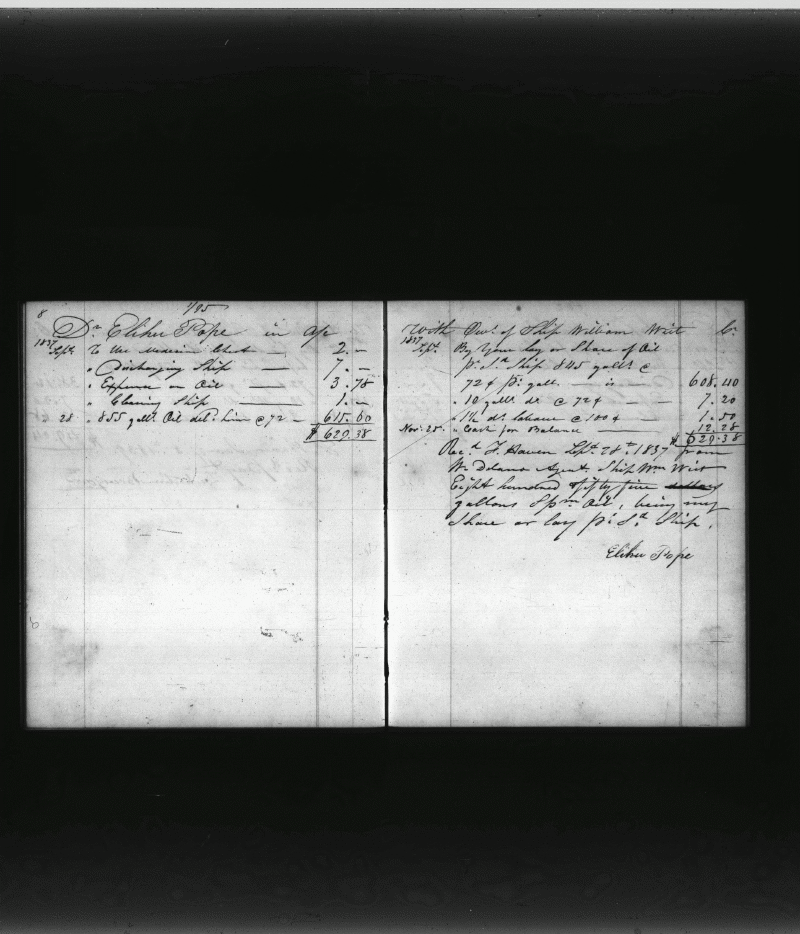 8
1/95
Dr. Elihu Pope in a/c
1837
Sept. To the Medicine Chest — 2. –
" Discharging Ship — 7. –
" Expense on Oil — 3.78
" Cleaning Ship — 1. –
" 28 " 855 galls. Oil del. him @ 72 – 615.60
$ 629.38
With Owrs. of Ship William Wirt Cr.
1837
Sept. By Your lay or Share of Oil
pr. Sd. Ship 845 galls @
72¢ pr. gall. — is — 608.40
" 10 galls. do @ 72¢ — 7.20
" 1½ do @ 100¢ — 1.50
Nov. 25. " Cash for Balance — 12.28
$ 629.38
Recd. F. Haven Sept. 28th. 1837 from
Wm. Delano Agent. Ship Wm Wirt
Eight hundred & fifty five
gallons Spm Oil, being my
Share or lay pr. Sd. Ship.
Elihu Pope